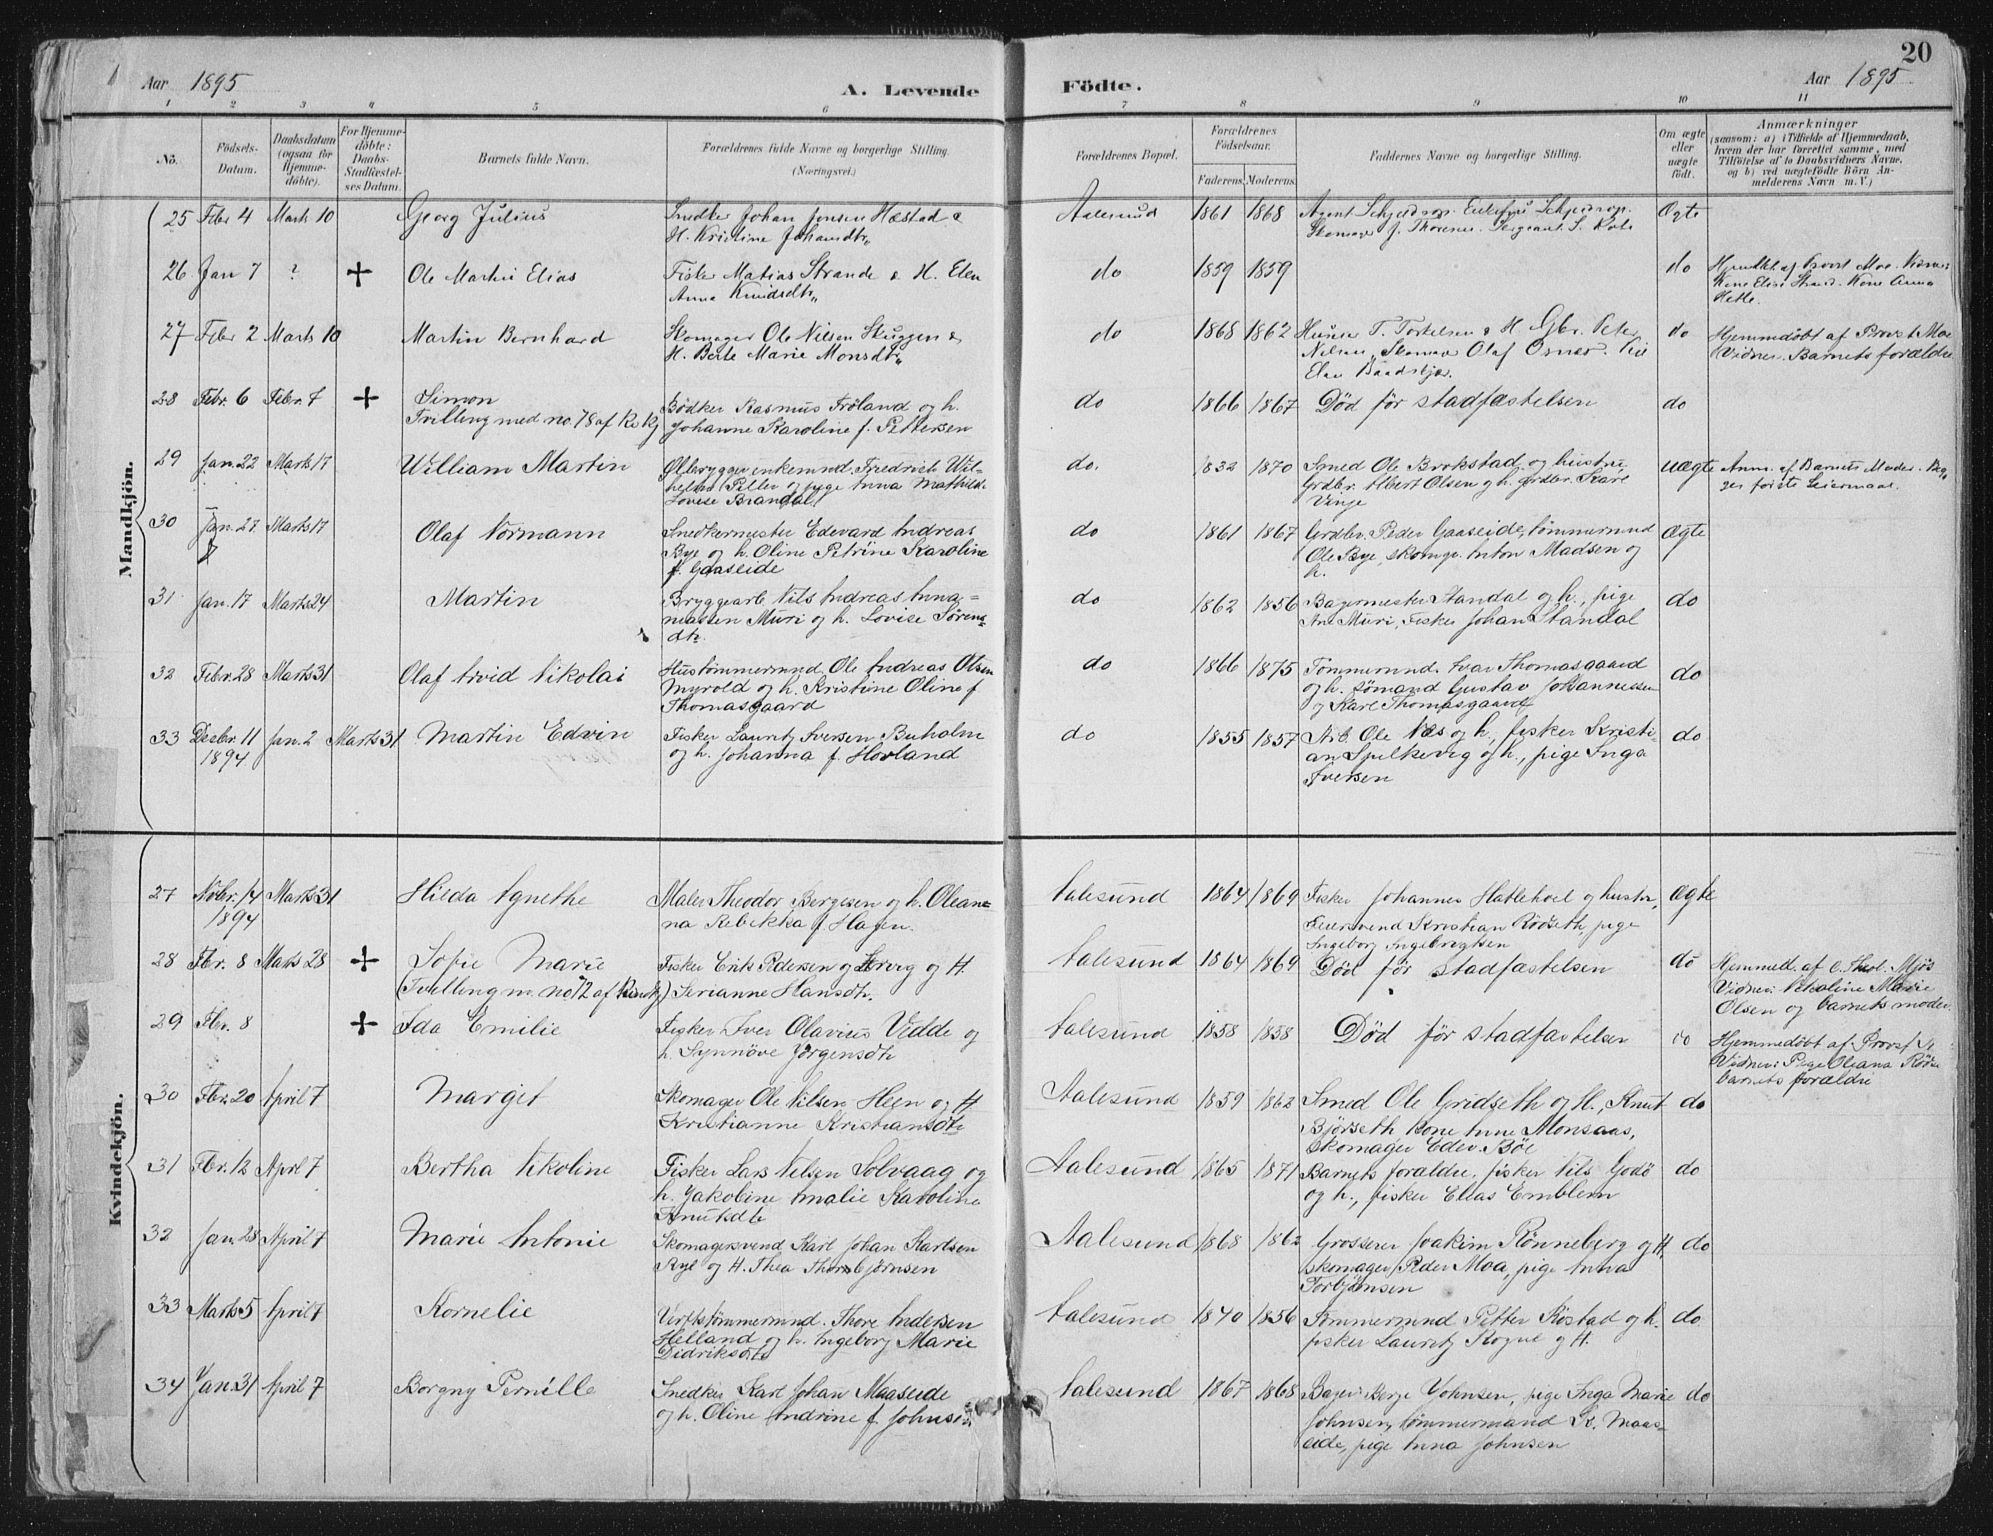 20
Aar 1895 A. Levende
Födte. Aar 1895
1 2 3 4 5 6
7 8 9 10 11
No.
Födsels-Datum.
Daabsdatum (ogsaa for Hjemme-döbte).
For Hjemme-döbte: Daabs-Stadfæstel-ses Datum.
Barnets fulde Navn.
Forældrenes fulde Navne og borgerlige Stilling. (Næringsvei.)
Forældrenes Bopæl.
Forældrenes Födselsaar.
Faderens. Moderens.
Faddernes Navne og borgerlige Stilling.
Om ægte eller uægte födt.
Anmærkninger
(saasom: a) i Tilfælde af Hjemmedaab,
hvem der har forrettet samme, med
Tilföielse af to Daabsvidners Navne,
og b) ved uægtefödte Börn An-
melderens Navn m. V.)
Mandkjön.
25 Febr 4 Marts 10 Georg Julius Snedker Johan Jensen Hæstad &
H. Kristine Johansdtr
Aalesund 1861 1868 Agent Ægte
Skomager J. Sergeant
26 Jan 7 ? + Ole Martin Elias Fisker Matias Strande & H. Elen
Anna Knudsdtr
do 1859 1859 do af Provst Moe
Kone Elise Strand. Kone Anna
27 Febr 2 Marts 10 Martin Bernhard Skomager Ole Nilsen Skuggen &
H. Berte Marie Monsdtr
do 1868 1862 T. Torkelsen & H Gbr. Peter do Hjemmedöbt af Provst Moe
Nilsen, Skomager Olaf Vidner. Barnets forældre
Elen
28 Febr. 6 Febr. 7 + Simon Bödker Rasmus Fröland og h.
Tvilling med no. 78 af Johanne Karoline f. Pettersen
do 1866 1867 Död för stadfæstelsen do
29 Jan. 22 Marts 17 William Martin Ölbrygger enkemnd. Friedrich Wil-
helm og pige Anna Mathilde
Lovise Brandal
do. 1832 1870 Smed Ole Brokstad og hustru, uægte Anm. af Barnets Moder.
Grdbr. Albert Olsen og h. grdbr. Kare ges förste Leiermaal.
Vinje
30 Jan. 27 Marts 17 Olaf Normann Snedkermester Edevard Andreas
Bye og h. Oline Petrine Karoline
f. Gaaseide
do 1861 1867 Grdbr. Peder Gaaseide, tömmermnd Ægte
Ole Bye, skomgr. Anton Madsen og
h.
31 Jan. 17 Marts 24 Martin Bryggearb Nils Andreas Anna-
nassen Muri og h. Lovise Sörens-
dtr.
do 1862 1856 Bagermester Standal og h., pige do
An. Muri, Fisker Johan Standal
32 Febr. 28 Marts 31 Olaf Arvid Nikolai Hustömmermnd. Ole Andreas Olsen
Myrvold og h. Kristine Oline f
Thomasgaard
do 1866 1875 Tömmermnd. Ivar Thomasgaard do
og h. sömand Gustav Johannessen
og Karl Thomasgaard
33 Decbr. 11 Jan. 2 Marts 31 Martin Edvin Fisker Lauritz Iversen Buholm
1894 og h. Johanna f. Hovland
do 1855 1857 N.b. Ole Næs og h., fisker Kristi- do
an Spilkevig og h., pige Inga
Iversen
Kvindekjön.
27 Nobr. 14 Marts 31 Hilda Agnethe Maler Theodor Bergesen og h. Olean-
1894 na Rebekka f. Hagen.
Aalesund 1864 1869 Fisker Johannes Hatlehoel og hustr., ægte
Feiersvend Kristian Röseth pige
Ingeborg Ingebrigtsen
28 Fbr. 8 Marts 28 + Sofie Marie Fisker Erik Pedersen og H.
(Tvilling m. no 12 af Kindkj) Serianne Hansdtr.
Aalesund 1864 1869 Död för stadfæstelsen do Hjemmed. af C. Theol. Mjös
Vidner: Nikoline Marie
Olsen og barnets moder.
29 Fbr. 8 + Ida Emilie Fisker Iver Olavius Vidde og
h. Synnöve Jörgensdtr
Aalesund 1858 1858 Död för stadfæstelsen do Hjemmedöbt af Provst
Vidner: Pige Oleana
barnets forældre
30 Fbr. 20 April 7 Marget Skomager Ole Nilsen Heen og H
Kristianne Kristiansdtr
Aalesund 1859 1862 Smed Ole Gridseth og H., Knut do
Björseth Kone Anne Monsaas,
Skomager Edev. Böe
31 Fbr. 12 April 7 Bertha Nikoline Fisker Lars Nilsen Solvaag og
h. Jakobine Amalie Karoline
Knutsdtr
Aalesund 1865 1871 Barnets forældre, fisker Nils Godö do
og h., fisker Elias Emblem
32 Jan. 28 April 7 Marie Antonie Skomagersvend Karl Johan Karlsen
Ryl og H. Thea Thorbjörnsen
Aalesund 1868 1862 Grosserer Joakim Rönneberg og H. do
skomager Peder Moa, pige Anna
Torbjörnsen
33 Marts 5 April 7 Kornelie Verftstömmermnd. Thore Andersen
Helland og h. Ingeborg Marie
Didriksdtr
Aalesund 1840 1856 Tömmermnd Petter Röstad og h. do
fisker Lauritz Rogne og H.
34 Jan 31 April 7 Borgny Pernille Snedker Karl Johan Maaseide
og h. Oline Andrine f. Johnsen
Aalesund 1867 1868 Bager Berge Johnsen, pige Inga Marie do
Johnsen, tömmermand K. Maas-
eide, pige Anna Johnsen